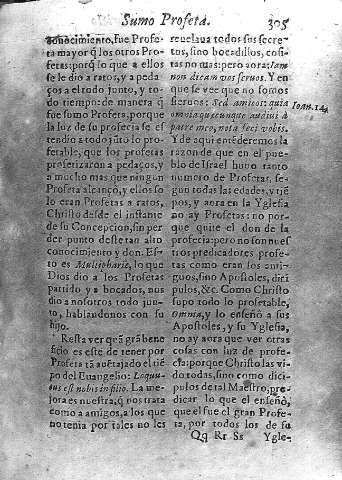 Sumo Profeta.
305
conocimiento, fue Profe
ta mayor q̃ los otros Pro
fetas: porq̃ lo que a ellos
se le dio a ratos, y a peda
ços a el todo junto, y to
do tiempo: de manera q̃
fue sumo Profeta, porque
la luz de su profecia se es
tendio a todo junto lo pro
fetable, que los profetas
profetizaron a pedaços, y
a mucho mas que ningun
Profeta alcançò, y ellos so
lo eran Profetas a ratos,
Christo desde el instante
de su Concepcion, sin per
der punto deste tan alto
conocimiento y don. Es
to es Multipharie, lo que
Dios dio a los Profetas
partido y a bocados, nos
dio a nosotros todo jun
to, hablandonos con su
hijo.
Resta ver quã grã bene
ficio es este de tener por
Profeta tã auẽtajado el tiẽ
po del Euangelio: Loquu-
tus est nobis in filio. La me
jora es nuestra, q̃ nos trata
como a amigos, a los que
no tenia por tales no les
reuelaua todos sus secre
tos, sino bocadillos, cosi
tas no mas: pero aora: Iam
non dicam vos seruos. Y en
que se vee que no somos
sieruos: Sed amicos: quia
omnia quæcunque audiui à
patre meo, nota feci vobis.
Y de aqui entẽderemos la
razon de que en el pue
blo de Israel huuo tanto
numero de Profetas, se-
gun todas las edades, y tiẽ
pos, y aora en la Yglesia
no ay Profetas: no por
que quite el don de la
profecia: pero no son nues
tros predicadores profe
tas como eran los anti-
guos, sino Apostoles, dici
pulos, &c. Como Christo
supo todo lo profetable,
Omnia, y lo enseñò a sus
Apostoles, y su Yglesia,
no ay aora que ver otras
cosas con luz de profe-
cia: porque Christo las vi-
do todas, sino como dici-
pulos de tal Maestro, pre-
dicar lo que el enseñò,
que el fue el gran Profe-
ta, por todos los de su
Ioan. 14.
Qq Rr Ss Ygle-